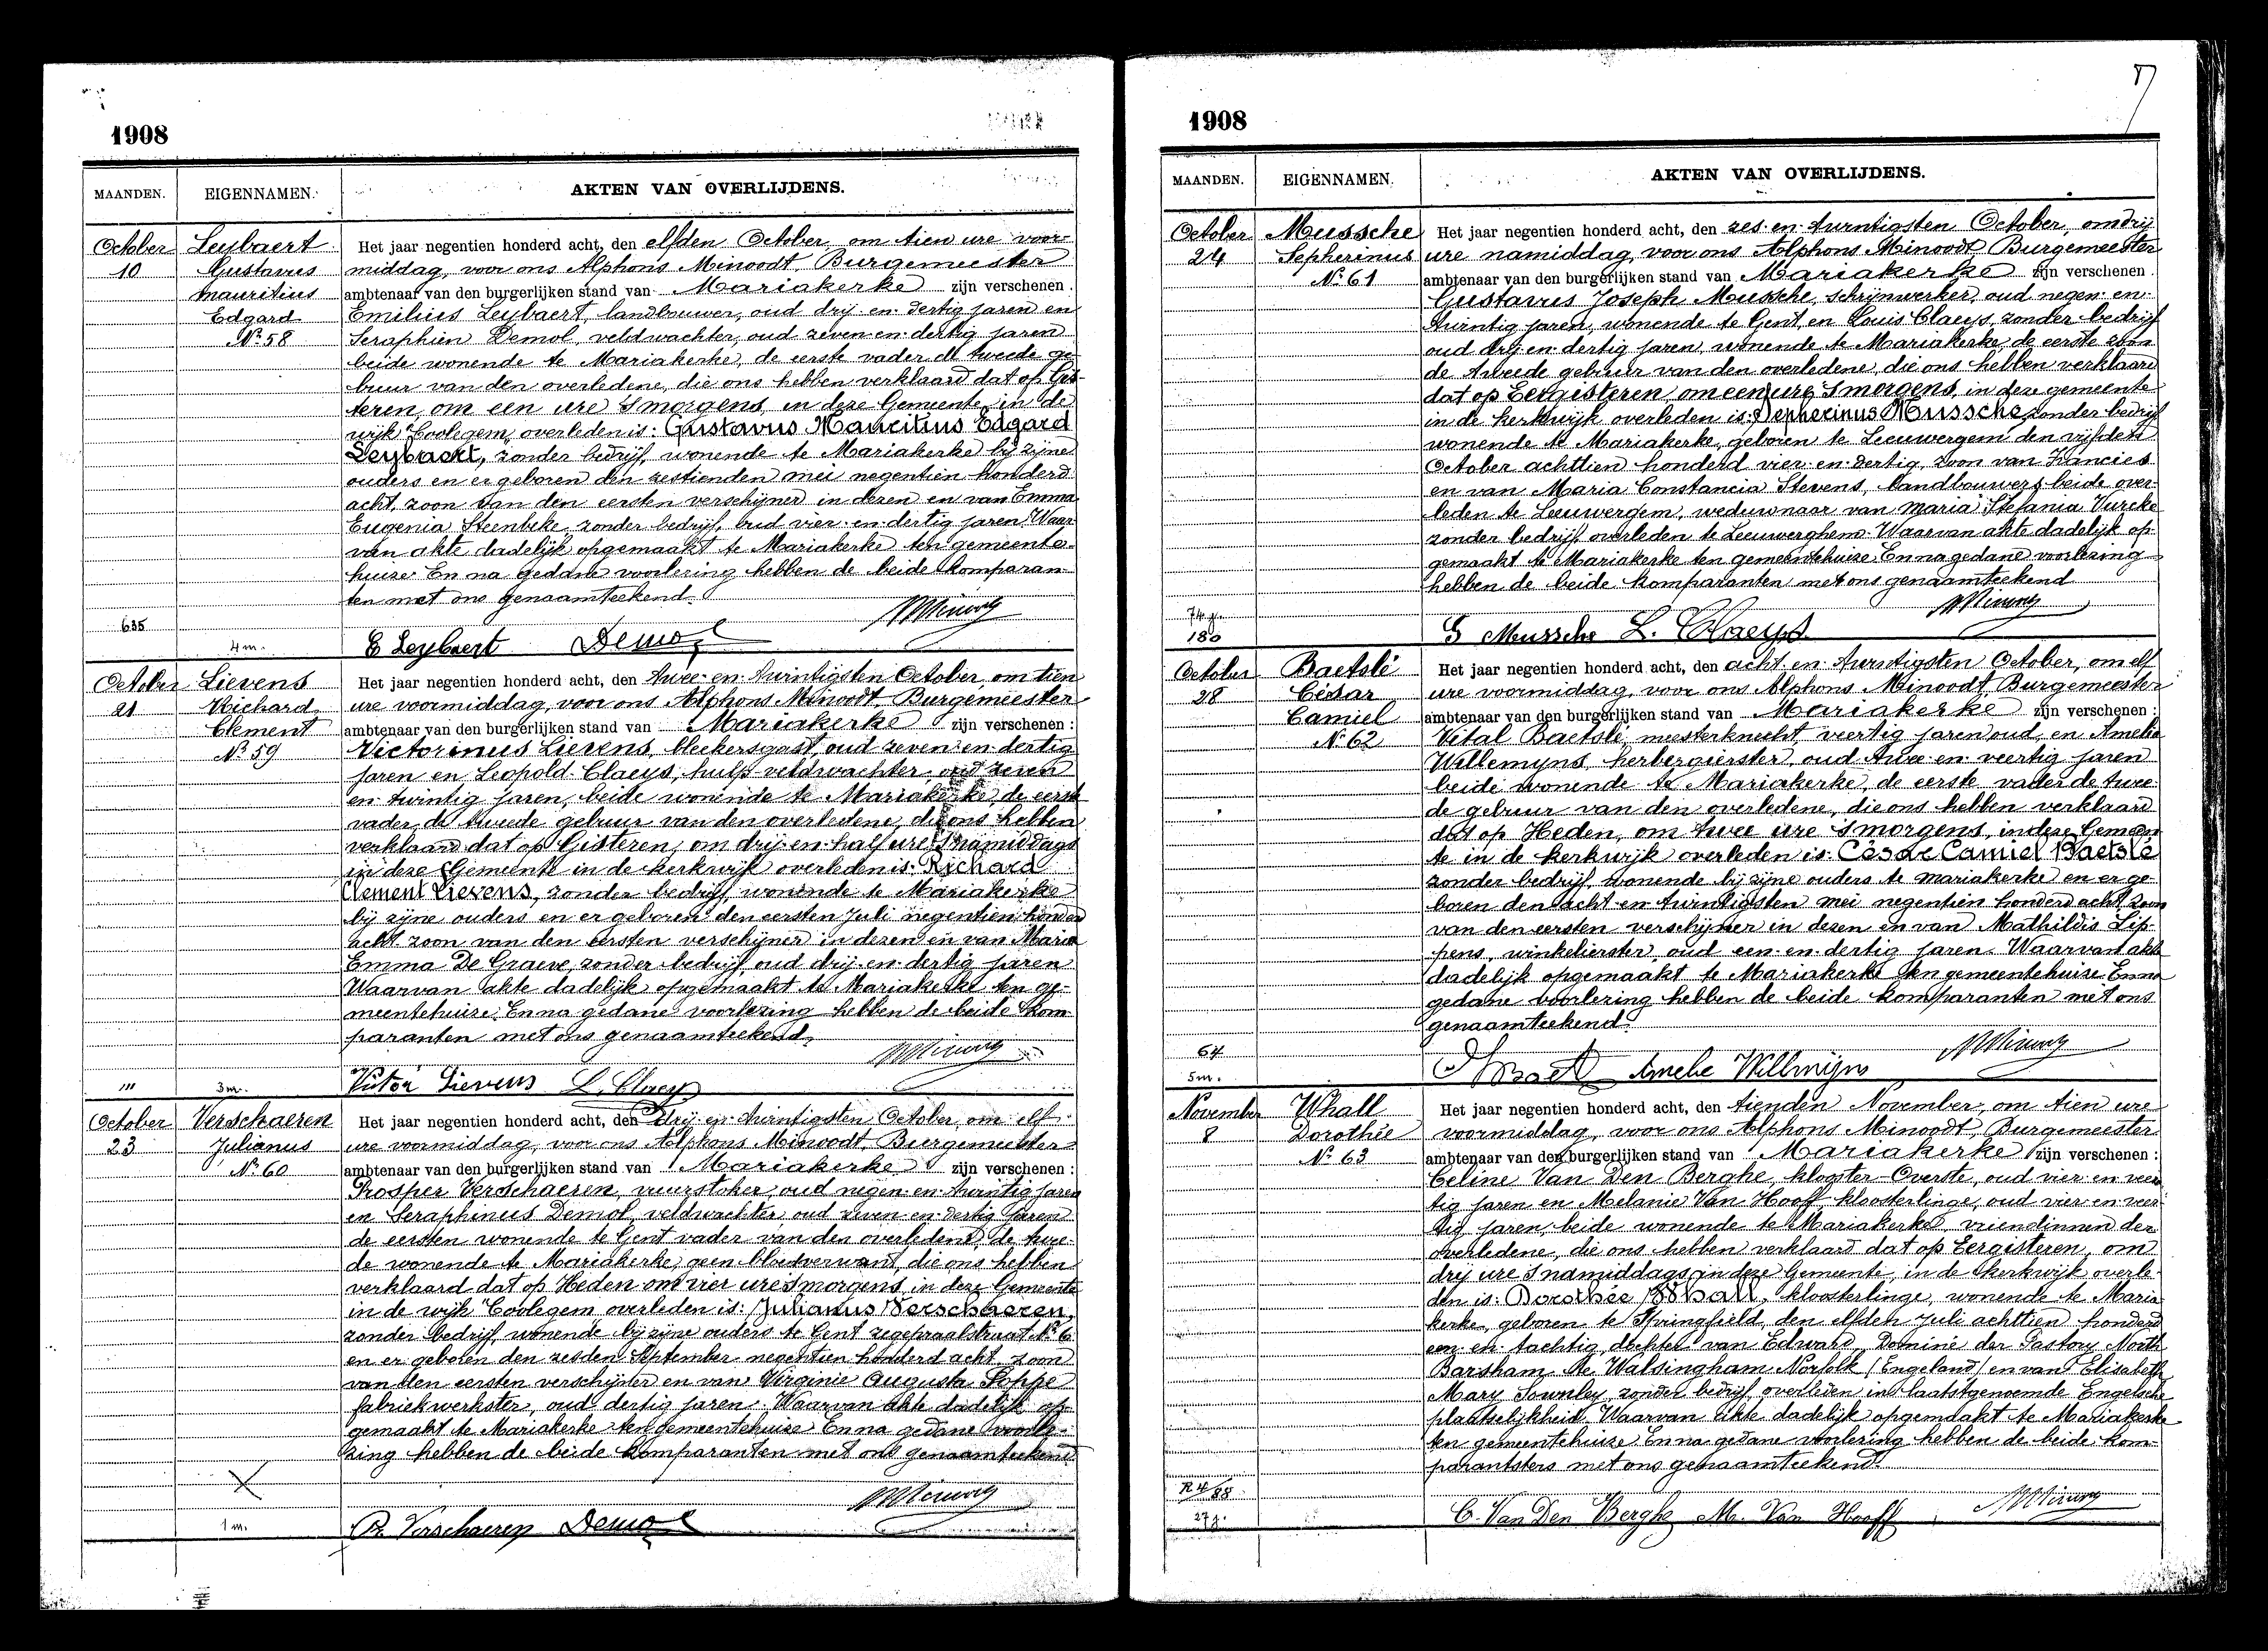 1908
MAANDEN. EIGENNAMEN. AKTEN VAN OVERLIJDENS.
October Leybaert Het jaar negentien honderd acht, den elfden October, om tien ure voor-
10 Gustavus middag, voor ons Alphons Minoodt, Burgemeester
Mauritius ambtenaar van den burgerlijken stand van Mariakerke zijn verschenen.
Edgard Emilius Leybaert, landbouwer, oud drij-en-dertig jaren en
No 58 Seraphien Demol, veldwachter, oud zeven-en-dertig jaren
beide wonende te Mariakerke, de eerste vader de tweede ge-
buur van den overledene, die ons hebben verklaard dat op Gis-
teren, om een ure 's morgens, in deze Gemeente, in de
wijk Coolegem, overleden is: Gustavus Mauritius Edgard
Leybaert, zonder bedrijf, wonende te Mariakerke bij zijne
ouders en er geboren den zestienden mei negentien honderd
acht, zoon van den eersten verschijner in dezen en van Emma
Eugenia Steenbeke, zonder bedrijf, oud vier-en-dertig jaren. Waar-
van akte dadelijk opgemaakt te Mariakerke ten gemeente-
huize. En na gedane voorlezing hebben de beide komparan-
ten met ons genaamteekend.
635
4 m. E Leybaert Demol
October Lievens Het jaar negentien honderd acht, den twee-en-twintigsten October, om tien
21 Richard ure voormiddag, voor ons Alphons Minoodt Burgemeester
Clement ambtenaar van den burgerlijken stand van Mariakerke zijn verschenen:
No 59 Victorinus Lievens, bleekersgast, oud zeven-en-dertig
jaren en Leopold Claeys, hulp-veldwachter oud zeven
en-twintig jaren, beide wonende te Mariakerke, de eerste
vader, de tweede gebuur van den overledene, die ons hebben
verklaard dat op Gisteren, om drij-en-half ure 's namiddags
in deze Gemeente in de kerkwijk overleden is: Richard
Clement Lievens, zonder bedrijf, wonende te Mariakerke
bij zijne ouders en er geboren den eersten Juli negentien honderd
acht, zoon van den eersten verschijner in dezen en van Maria
Emma De Graeve, zonder bedrijf, oud drij-en-dertig jaren
Waarvan akte dadelijk opgemaakt te Mariakerke ten ge-
meentehuize. En na gedane voorlezing hebben de beide kom-
paranten met ons genaamteekend.
111 3 m. Victor Lievens L. Claeys
October Verschaeren Het jaar negentien honderd acht, den drij-en-twintigsten October, om elf
23 Julianus ure voormiddag, voor ons Alphons Minoodt, Burgemeester
No 60 ambtenaar van den burgerlijken stand van Mariakerke zijn verschenen:
Prosper Verschaeren, vuurstoker, oud negen-en-twintig jaren
en Seraphinus Demol, veldwachter oud zeven-en-dertig jaren
de eersten wonende te Gent vader van den overledene, de twee-
de wonende te Mariakerke, geen bloedverwant, die ons hebben
verklaard dat op Heden om vier ure 's morgens, in deze Gemeente
in de wijk Coolegem, overleden is: Julianus Verschaeren,
zonder bedrijf, wonende bij zijne ouders te Gent zegepraalstraat No 6
en er geboren den zesden September negentien honderd acht, zoon
van den eersten verschijner en van Virginie Augusta Poppe
fabriekwerkster, oud dertig jaren. Waarvan akte dadelijk op-
gemaakt te Mariakerke ten gemeentehuize. En na gedane voorle-
zing hebben de beide komparanten met ons genaamteekend
1 m. P. Verschaeren Demol
1908
MAANDEN. EIGENNAMEN. AKTEN VAN OVERLIJDENS.
October Mussche Het jaar negentien honderd acht, den zes-en-twintigsten October, om drij
24 Sepherinus ure namiddag, voor ons Alphons Minoodt, Burgemeester
No 61 ambtenaar van den burgerlijken stand van Mariakerke zijn verschenen.
Gustavus Joseph Mussche, schrijnwerker, oud negen-en-
twintig jaren, wonende te Gent, en Louis Claeys, zonder bedrijf
oud drij-en-dertig jaren, wonende te Mariakerke, de eerste zoon
de tweede gebuur van den overledene, die ons hebben verklaard
dat op Eergisteren, om een ure 's morgens, in deze gemeente
in de kerkwijk overleden is: Sepherinus Mussche, zonder bedrijf
wonende te Mariakerke, geboren te Leeuwergem den vijfden
October achttien honderd vier-en-dertig, zoon van Francies
en van Maria Constancia Stevens, landbouwers beide over-
leden te Leeuwergem, weduwnaar van Maria Stefania Vurcke
zonder bedrijf, overleden te Leeuwerghem. Waarvan akte dadelijk op-
gemaakt te Mariakerke ten gemeentehuize. En na gedane voorlezing
hebben de beide komparanten met ons genaamteekend
74 j.
180 G Mussche L. Claeys
October Baetslé Het jaar negentien honderd acht, den acht-en-twintigsten October, om elf
28 César ure voormiddag, voor ons Alphons Minoodt, Burgemeester
Camiel ambtenaar van den burgerlijken stand van Mariakerke zijn verschenen:
No 62 Vital Baetslé, meesterknecht, veertig jaren oud, en Amelia
Willemyns, herbergierster, oud twee-en-veertig jaren
beide wonende te Mariakerke, de eerste vader de twee-
de gebuur van den overledene, die ons hebben verklaard
dat op Heden, om twee ure 's morgens, in deze Gemeen
te in de kerkwijk overleden is: César Camiel Baetslé
zonder bedrijf, wonende bij zijne ouders te Mariakerke en er ge-
boren den acht-en-twintigsten mei negentien honderd acht, zoon
van den eersten verschijner in dezen en van Mathildis Lip-
pens, winkelierster, oud een-en-dertig jaren. Waarvan akte
dadelijk opgemaakt te Mariakerke ten gemeentehuize. En na
gedane voorlezing hebben de beide komparanten met ons
genaamteekend.
64
5 m. Amelie Willmijns
November Whall Het jaar negentien honderd acht, den tienden November, om tien ure
8 Dorothée voormiddag, voor ons Alphons Minoodt, Burgemeester
No 63 ambtenaar van den burgerlijken stand van Mariakerke zijn verschenen:
Celine Van Den Berghe, klooster-Overste, oud vier-en-veer
tig jaren en Melanie Van Hooff, kloosterlinge, oud vier-en-veer-
tig jaren, beide wonende te Mariakerke, vriendinnen der
overledene, die ons hebben verklaard dat op Eergisteren, om
drij ure 's namiddags, in deze Gemeente, in de kerkwijk overle-
den is: Dorothée Whall, kloosterlinge, wonende te Maria
kerke, geboren te Springfield, den elfden Juli achttien honderd
een-en-tachtig, dochter van Edward, Dominé der Pastory North
Barsham Nr Walsingham Norfolk (Engeland) en van Elisabeth
Mary Townley, zonder bedrijf, overleden in laatstgenoemde Engelsche
plaatselijkheid. Waarvan akte dadelijk opgemaakt te Mariakerke
ten gemeentehuize. En na gedane voorlezing hebben de beide kom-
parantsters met ons genaamteekend.
R 4/88
27 j. C. Van Den Berghe M. Van Hooff